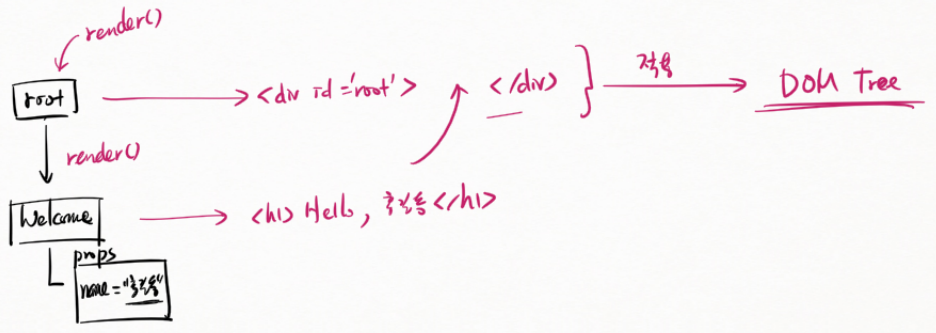 render()
root
<div id='root'>
</div>
적용
DOM Tree
render()
Welcome
<h1> Hello, 홍길동</h1>
props
name="홍길동"